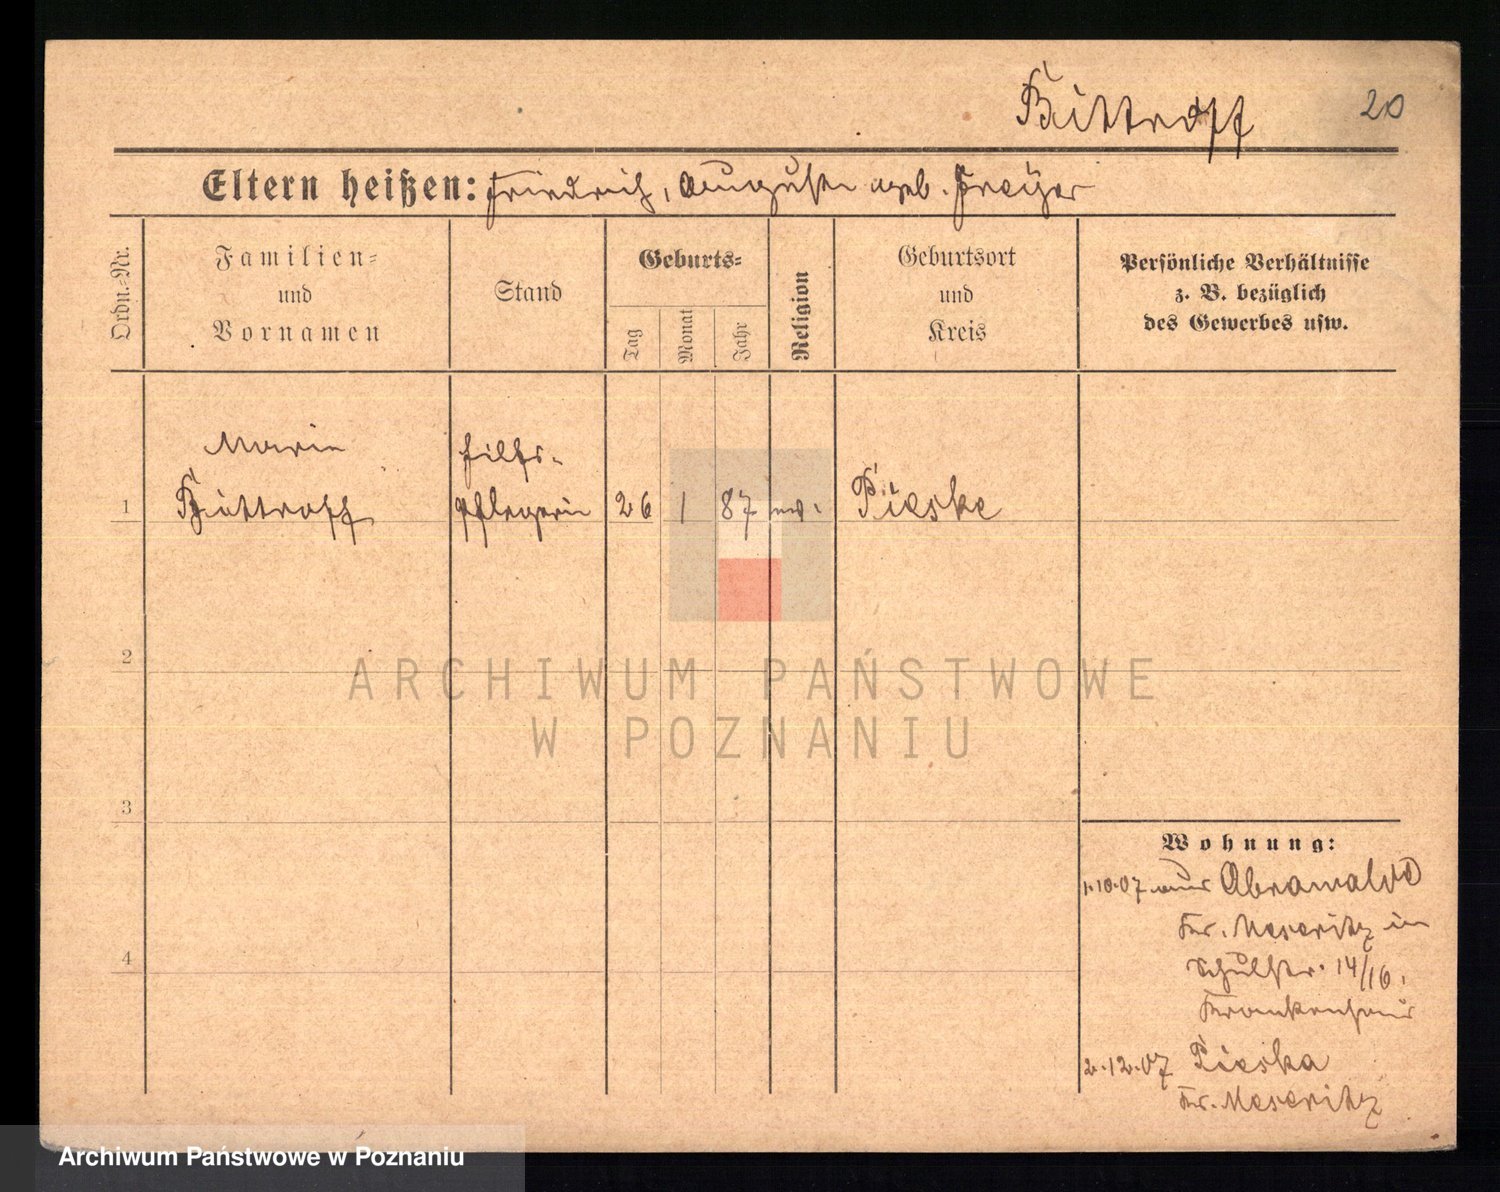 Bittroff
20
Eltern heißen: Friedrich, Auguste geb. Freyer
Ordn.-Nr.
Familien-
und
Vornamen
Stand
Geburts-
Tag
Monat
Jahr
Religion
Geburtsort
und
Kreis
Persönliche Verhältnisse
z. B. bezüglich
des Gewerbes usw.
1
Marie
Bittroff
Hilfs-
pflegerin
26
1
87
ev.
Pieske
2
ARCHIWUM PAŃSTWOWE
W POZNANIU
3
4
Wohnung:
1.10.07 aus Obrawalde
Kr. Meseritz in
Schulstr. 14/16.
Krankenhaus
2.12.07 Pieske
Kr. Meseritz
Archiwum Państwowe w Poznaniu